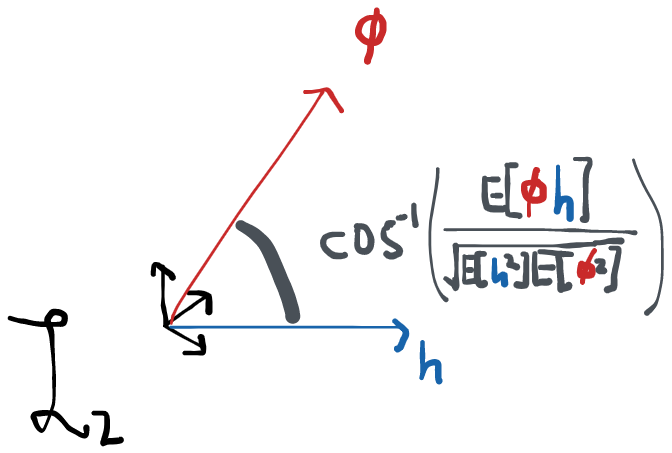 ϕ
cos⁻¹(E[ϕh] / √E[h²]E[ϕ²])
h
L₂